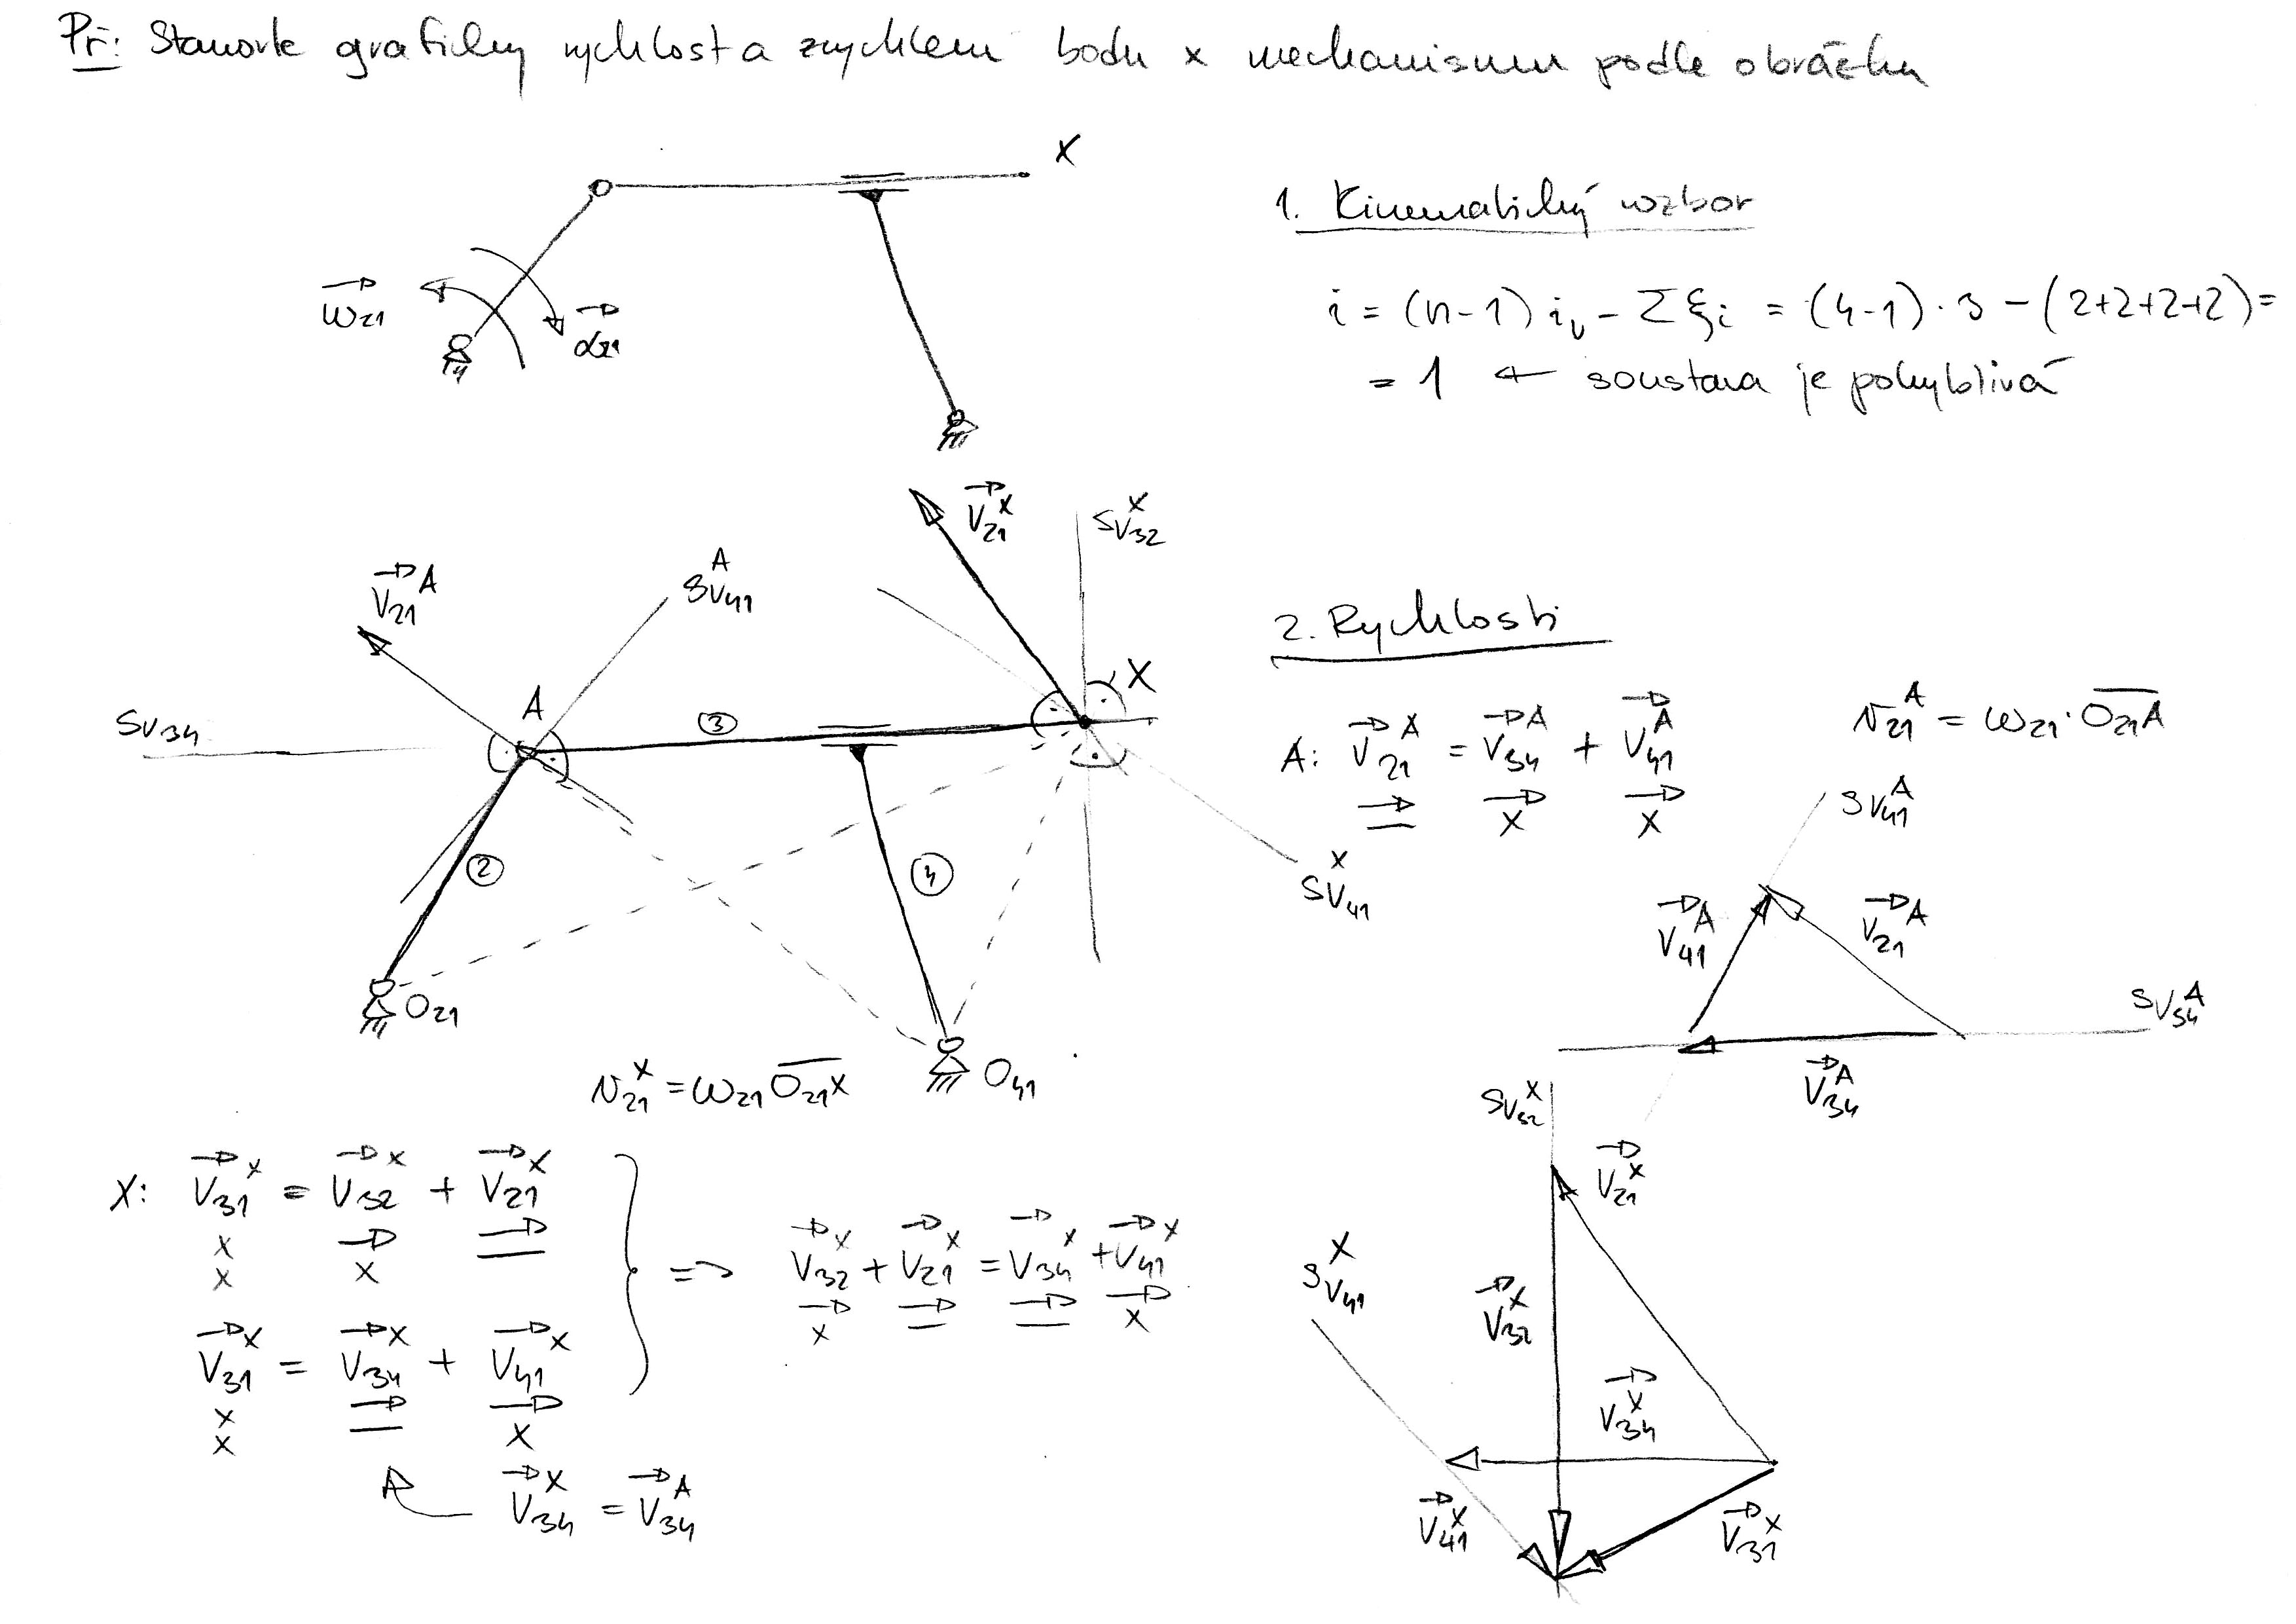 Př: Stanovte graficky rychlost a zrychlení bodu x mechanismu podle obrázku
X
ω21
α21
1. Kinematický rozbor
i = (n-1) iv - Σξi = (4-1)·3 - (2+2+2+2) =
= 1 ← soustava je pohyblivá
V21 A
sV41 A
V21 X
sV32 X
sV34
A
3
X
2
4
O21
O41
sV41 X
2. Rychlosti
A: V21 A = V34 A + V41 A
v21 A = ω21 · O21A
sV41 A
V41 A
V21 A
sV34 A
V34 A
v21 X = ω21 O21X
X: V31 X = V32 X + V21 X
x x
V31 X = V34 X + V41 X
x x
=> V32 X + V21 X = V34 X + V41 X
x x
V34 X = V34 A
sV32 X
V21 X
sV41 X
V32 X
V34 X
V41 X
V31 X